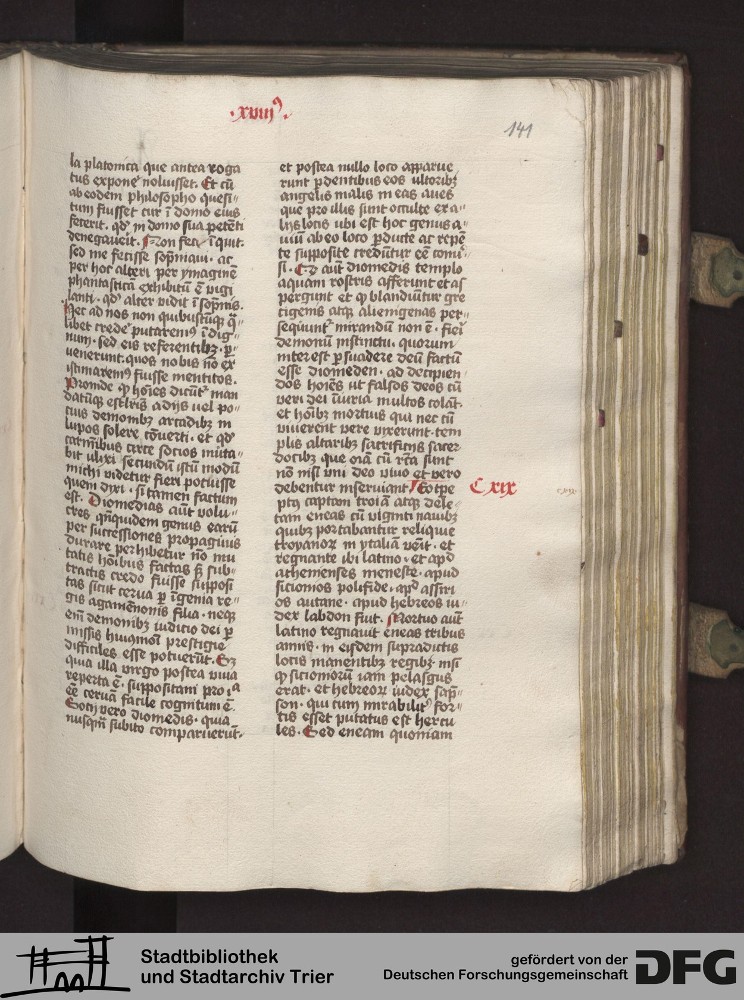 .xviijꝰ.
141
la platonica que antea roga
tus expone noluisset. Et cū
ab eodem philosopho quesi-
tum fuisset cur ī domo eius
fecerit. qd' in domo sua petēti
denegauerit. Non feci īquit.
sed me fecisse sōpniaui. ac
per hoc alteri per ymaginē
phantasticā exhibitū ē vigi
lanti. qd' alter vidit ī sōpnis.
Hec ad nos non quibusꝯq; q̄-
libet crede' putaremꝰ īdig-
num. sed eis referentibꝫ. ꝑ-
uenerunt. quos nobis nō ex
istimaremꝰ fuisse mentitos.
Proinde ꝙ hoīes dicūt' man
datūq; est lr̄is a dijs uel po-
cius demonibꝫ arcadibꝫ in
lupos solere cōuerti. et qd'
carmībus circe socios muta-
bit ulixi secundū istū modū
michi videtur fieri potuisse
quem dixi. si tamen factum
est. Diomedias aūt volu-
cres qn̄quidem genus earū
per successiones propaginis
durare perhibetur nō mu
tatis hoībus factas sꝫ sub-
tractis credo fuisse supposi
tas sicut cerua ꝓ īgenia re-
gis agamēnonis filia. neq;
em̄ demonibꝫ iudicio dei ꝑ
missis huiꝰmōi prestigie
difficiles esse potuerūt. Sꝫ
quia illa virgo postea viua
reperta ē. suppositam pro ia
eē ceruā facile cognitum ē.
Socij vero diomedis. quia
nusqm̄ subito comparuerūt.
et postea nullo loco apparue
runt ꝑdentibus eos ultoribꝫ
angelis malis in eas aues
que pro illis sunt occulte ex a-
lijs locis ubi est hoc genus a-
uiū ab eo loco ꝑducte ac repē
te supposite creduntur eē cōmu-
si. Qd aūt diomedis templo
aquam rostris afferunt et as
pergunt et ꝙ blandiūtur gre
cigenis atq; alienigenas per-
sequūnt' mirandū non ē. fiei
demonū instinctu. quorum
interest ꝑsuadere deū factū
esse diomeden. ad decipien-
dos hoīes ut falsos deos cū
veri dei īiuria multos colāt.
et hoībꝫ mortuis qui nec cū
viuerent vere vixerunt. tem
plis altaribꝫ sacrificijs sacer
docibꝫ que oīa cū rc̄a sunt
nō nisi vni deo viuo et vero
debentur inseruiant. Eo tpe
C xix
ptꝰ captam troiā atq; dele-
tam eneas cū viginti nauibꝫ
quibꝫ portabantur reliquie
troyanoꝝ in ytaliā venit. et
regnante ibi latino. et apd
athenienses meneste. apud
sicionios polifide. apd assiri
os autane. apud hebreos iu-
dex labdon fiut. Mortuo aūt
latino regnauit eneas tribus
annis. in eisdem supradictis
locis manentibꝫ regibꝫ nisi
ꝙ sicioniorū iam pelasgus
erat. et hebreoꝝ iudex sāp-
son. qui cum mirabilit' for-
tis esset putatus est hercu
les. Sed eneam quoniam
Stadtbibliothek
und Stadtarchiv Trier
gefördert von der
Deutschen Forschungsgemeinschaft
DFG